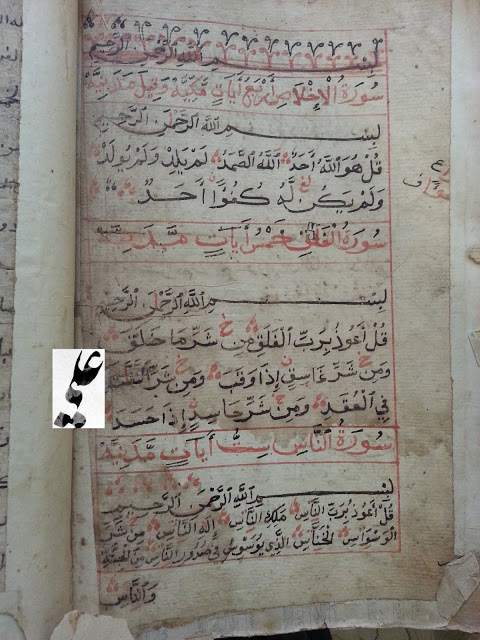 بسم الله الرحمن الرحيم
سورة الإخلاص أربع آيات مكية وقيل مدنية
بسم الله الرحمن الرحيم
قُلْ هُوَ اللَّهُ أَحَدٌ اللَّهُ الصَّمَدُ لَمْ يَلِدْ وَلَمْ يُولَدْ
وَلَمْ يَكُن لَّهُ كُفُوًا أَحَدٌ
سورة الفلق خمس آيات مدنية
بسم الله الرحمن الرحيم
قُلْ أَعُوذُ بِرَبِّ الْفَلَقِ مِن شَرِّ مَا خَلَقَ
وَمِن شَرِّ غَاسِقٍ إِذَا وَقَبَ وَمِن شَرِّ النَّفَّاثَاتِ
فِي الْعُقَدِ وَمِن شَرِّ حَاسِدٍ إِذَا حَسَدَ
سورة الناس ست آيات مدنية
بسم الله الرحمن الرحيم
قُلْ أَعُوذُ بِرَبِّ النَّاسِ مَلِكِ النَّاسِ إِلَهِ النَّاسِ مِن شَرِّ
الْوَسْوَاسِ الْخَنَّاسِ الَّذِي يُوَسْوِسُ فِي صُدُورِ النَّاسِ مِنَ الْجِنَّةِ
وَالنَّاسِ
علي